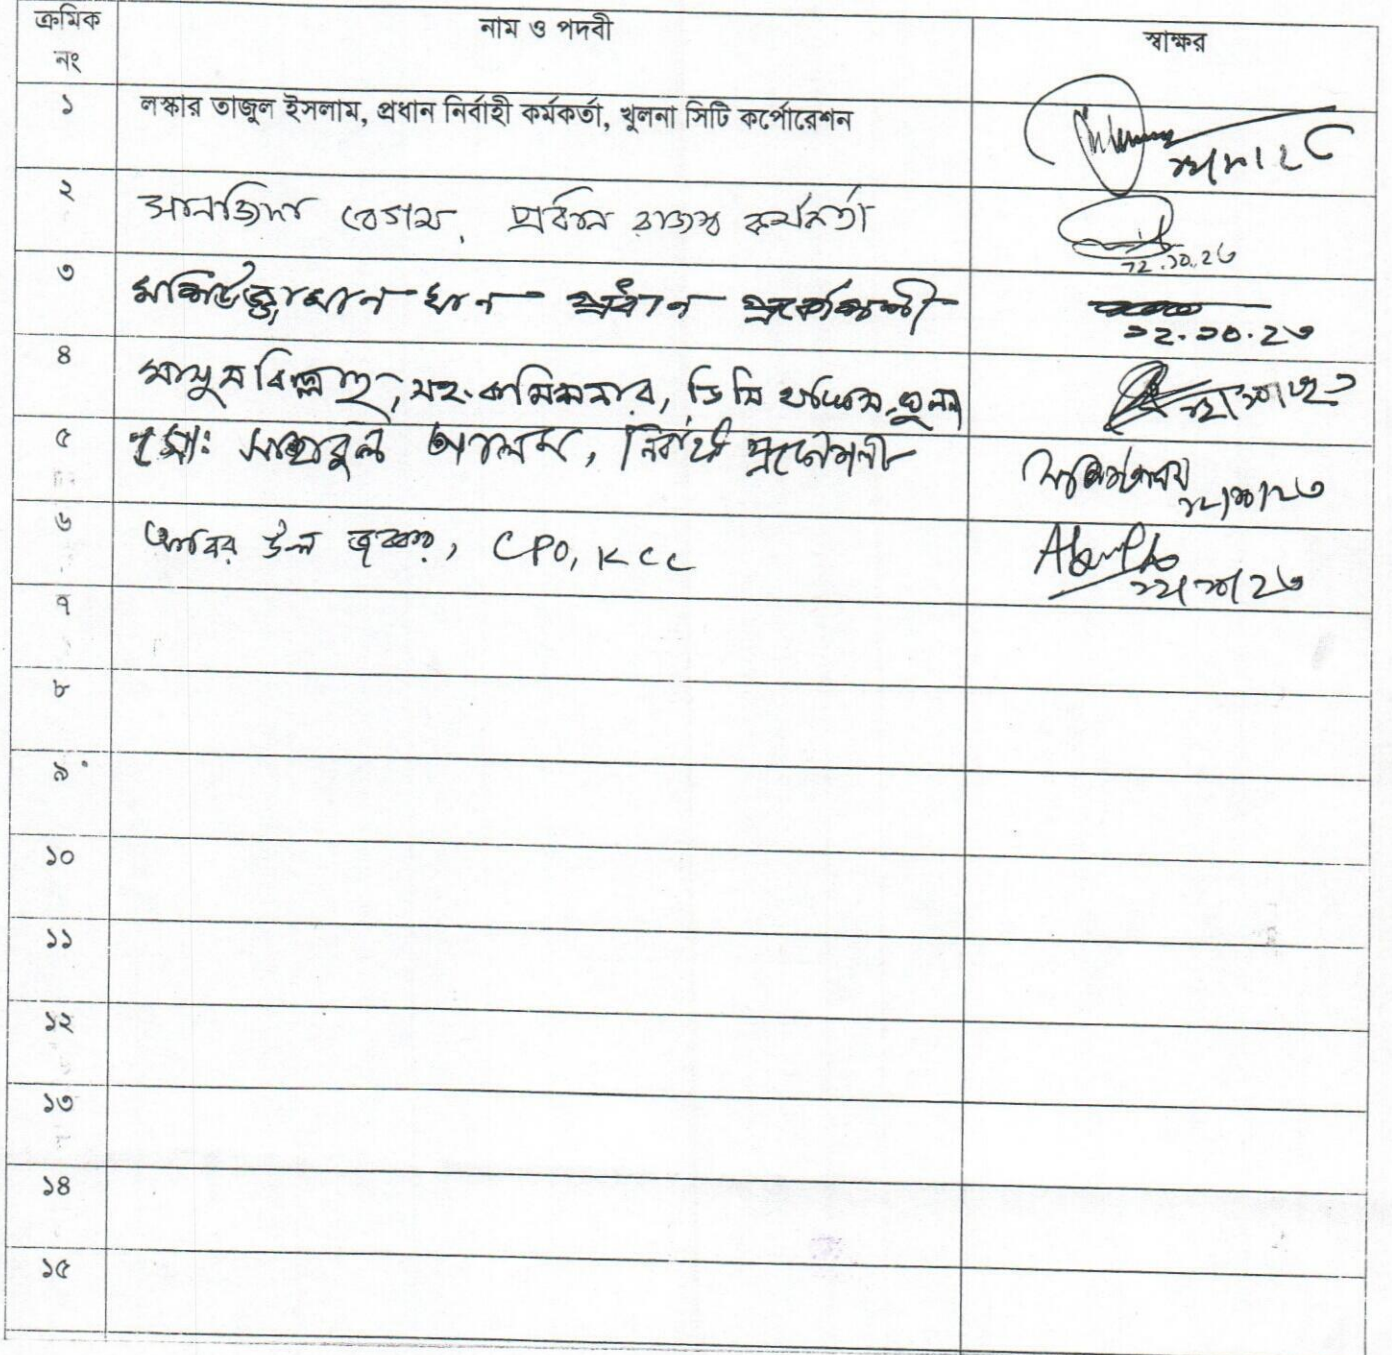 ক্রমিক নং নাম ও পদবী স্বাক্ষর
১ লস্কার তাজুল ইসলাম, প্রধান নির্বাহী কর্মকর্তা, খুলনা সিটি কর্পোরেশন
২ সানজিদা বেগম, প্রধান রাজস্ব কর্মকর্তা ১২.১০.২৩
৩ মশিউজ্জামান খান প্রধান প্রকৌশলী ১২.১০.২৩
৪ মাসুম বিল্লাহ, সহ. কমিশনার, ডিসি অফিস, খুলনা
৫ মোঃ আলম, নির্বাহী প্রকৌশলী
৬ আবির উল জব্বার, CPO, KCC
৭
৮
৯
১০
১১
১২
১৩
১৪
১৫